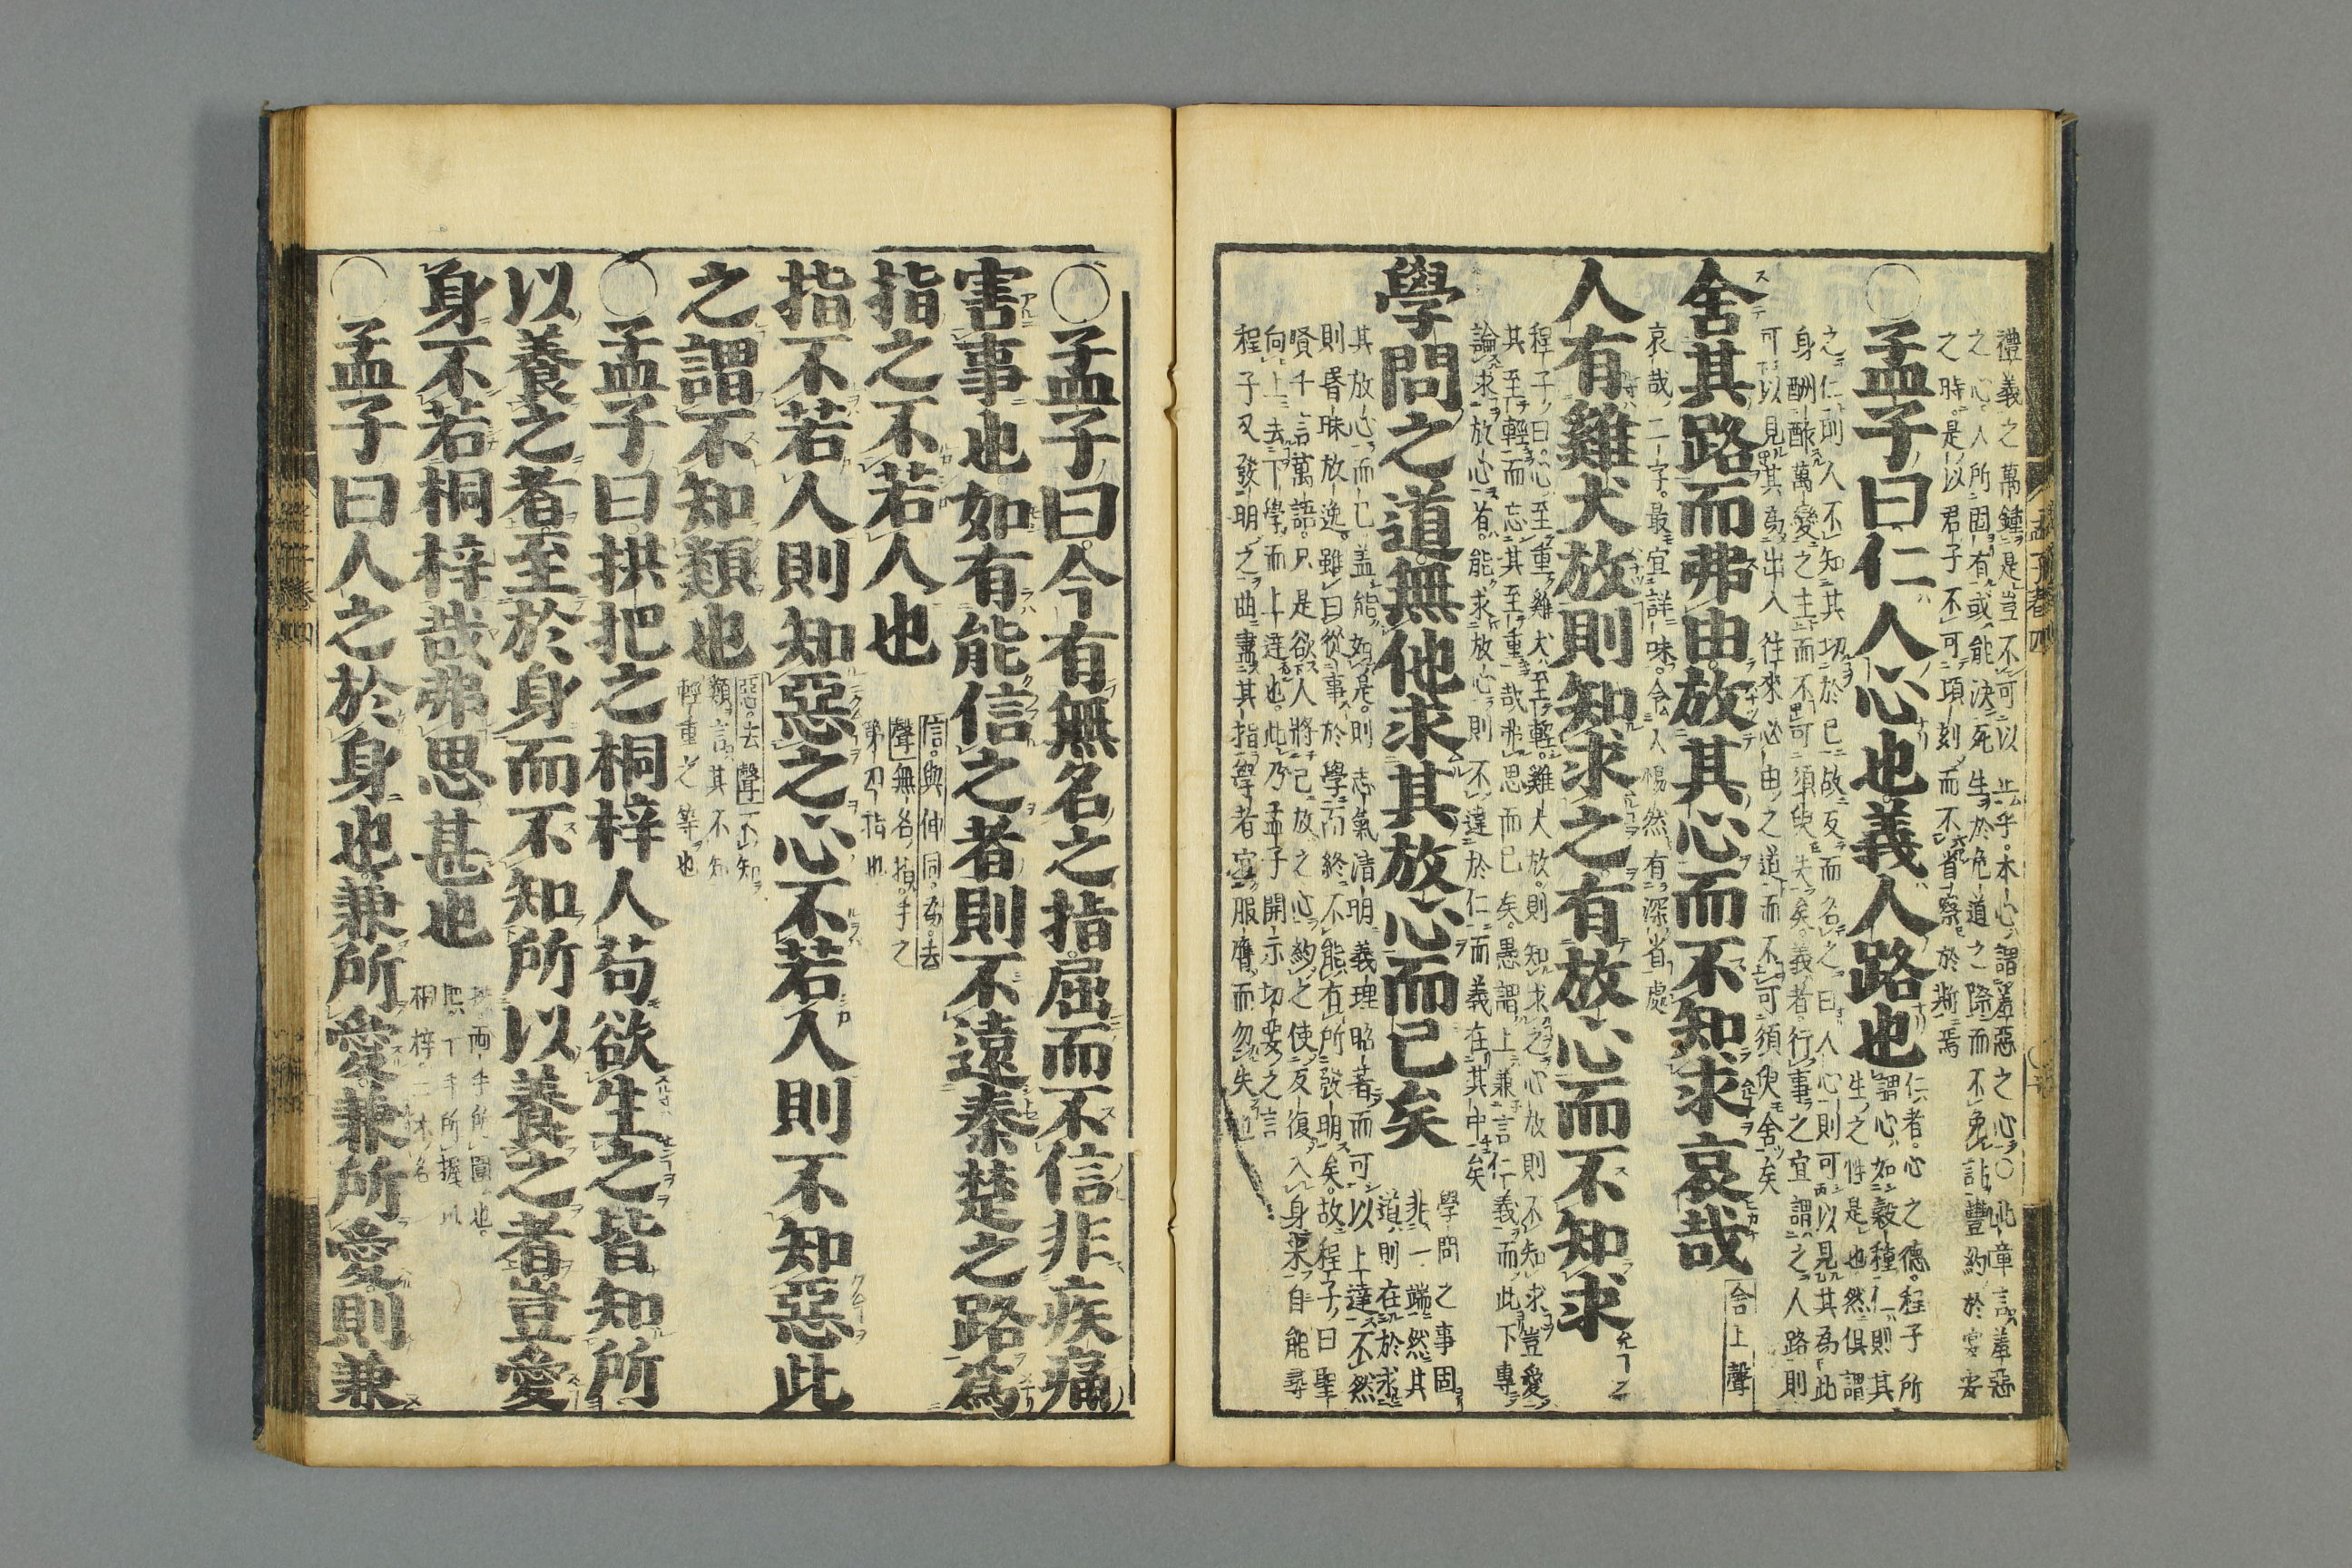 禮義之萬鍾是豈不可以止乎本心謂羞惡之心○此章言羞惡
之心人所固有或能決死生於危道之際而不免計豐約於宴安
之時是以君子不可頃刻而不省察於斯焉
○孟子曰仁人心也義人路也
仁者心之德程子所
謂心如穀種仁則其
生之性是也然俱謂
之仁則人不知其切於己故反而名之曰人心則可以見其爲此
身酬酢萬變之主而不可須臾失矣義者行事之宜謂之人路則
可以見其爲出入往來必由之道而不可須臾舍矣
舍其路而弗由放其心而不知求哀哉
舍上聲
哀哉二字最宜詳味令人惕然有深省處
人有雞犬放則知求之有放心而不知求
程子曰心至重雞犬至輕雞犬放則知求之心放則不知求豈愛
其至輕而忘其至重哉弗思而已矣愚謂上兼言仁義而此下專
論求放心者能求放心則不違於仁而義在其中矣
學問之道無他求其放心而已矣
學問之事固
非一端然其
道則在於求
其放心而已蓋能如是則志氣清明義理昭著而可以上達不然
則昬昧放逸雖曰從事於學而終不能有所發明矣故程子曰聖
賢千言萬語只是欲人將已放之心約之使反復入身來自能尋
向上去下學而上達也此乃孟子開示切要之言
程子又發明之曲盡其指學者宜服膺而勿失也
○孟子曰今有無名之指屈而不信非疾痛
害事也如有能信之者則不遠秦楚之路爲
指之不若人也
信與伸同爲去
聲無名指手之
第四指也
指不若人則知惡之心不若人則不知惡此
之謂不知類也
惡去聲不知
類言其不知
輕重之等也
○孟子曰拱把之桐梓人苟欲生之皆知所
以養之者至於身而不知所以養之者豈愛
身不若桐梓哉弗思甚也
拱兩手所圍也
把一手所握也
桐梓二木名
○孟子曰人之於身也兼所愛兼所愛則兼